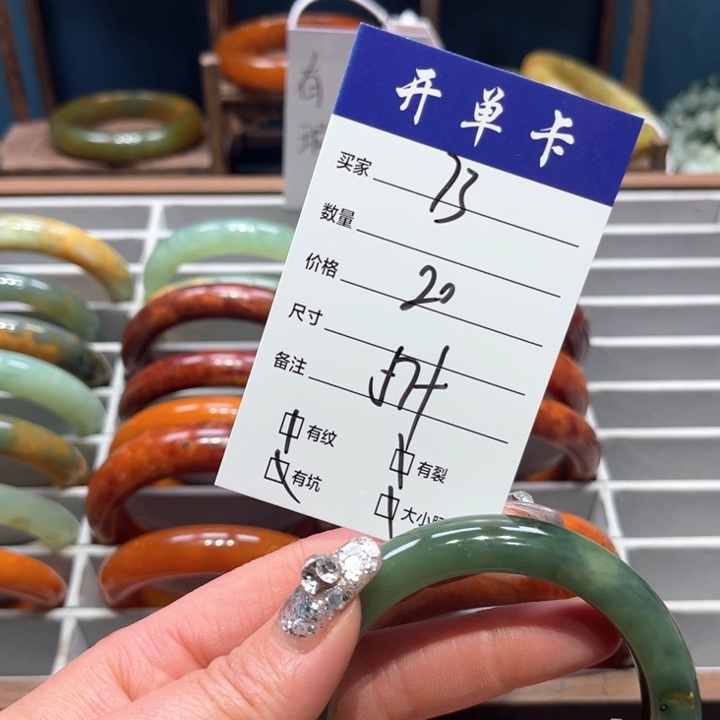 开单卡
买家 13
数量
价格 20
尺寸
备注
有纹
有裂
有坑
大小
有